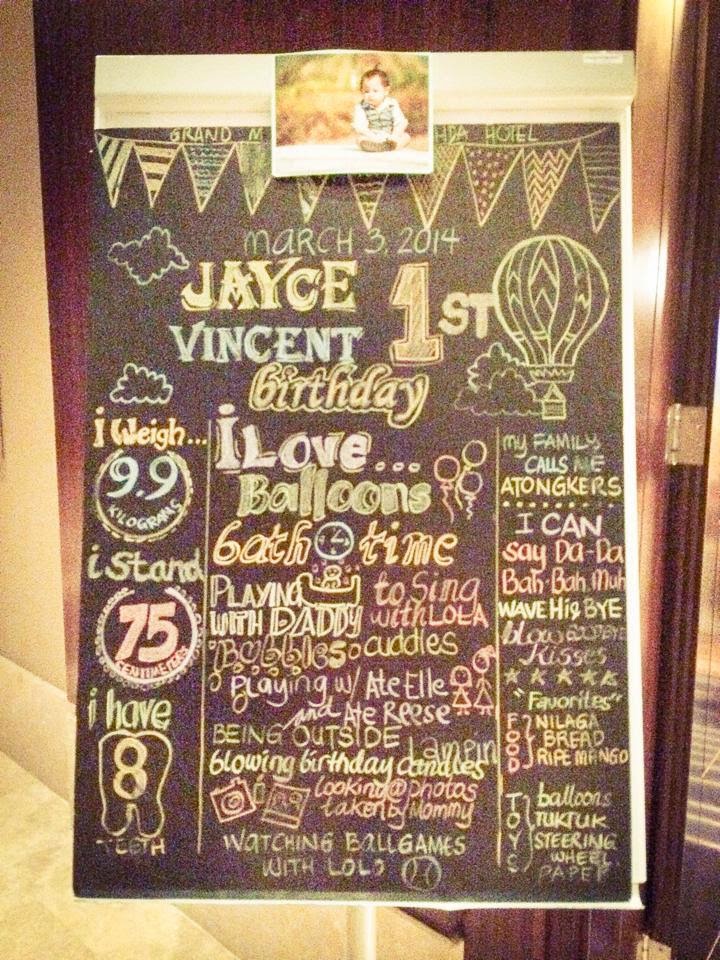 GRAND M HDA HOTEL
MARCH 3, 2014
JAYCE
VINCENT
1ST
birthday
i Weigh...
9.9
KILOGRAMS
i stand
75
CENTIMETERS
i have
8
TEETH
i Love...
Balloons
bath time
PLAYING
WITH DADDY
to sing
with LOLA
Bubbles
cuddles
playing w/ Ate Elle
and Ate Reese
BEING OUTSIDE
Lampin
blowing birthday candles
looking @ photos
taken by Mommy
WATCHING BALLGAMES
WITH LOLO
my FAMILY
CALLS ME
ATONGKERS
I CAN
say Da-Da
Bah-Bah, Muh
WAVE Hi & BYE
blow
Kisses
"Favorites"
FOOD
NILAGA
BREAD
RIPE MANGO
TOYS
balloons
TUKTUK
STEERING
WHEEL
PAPER